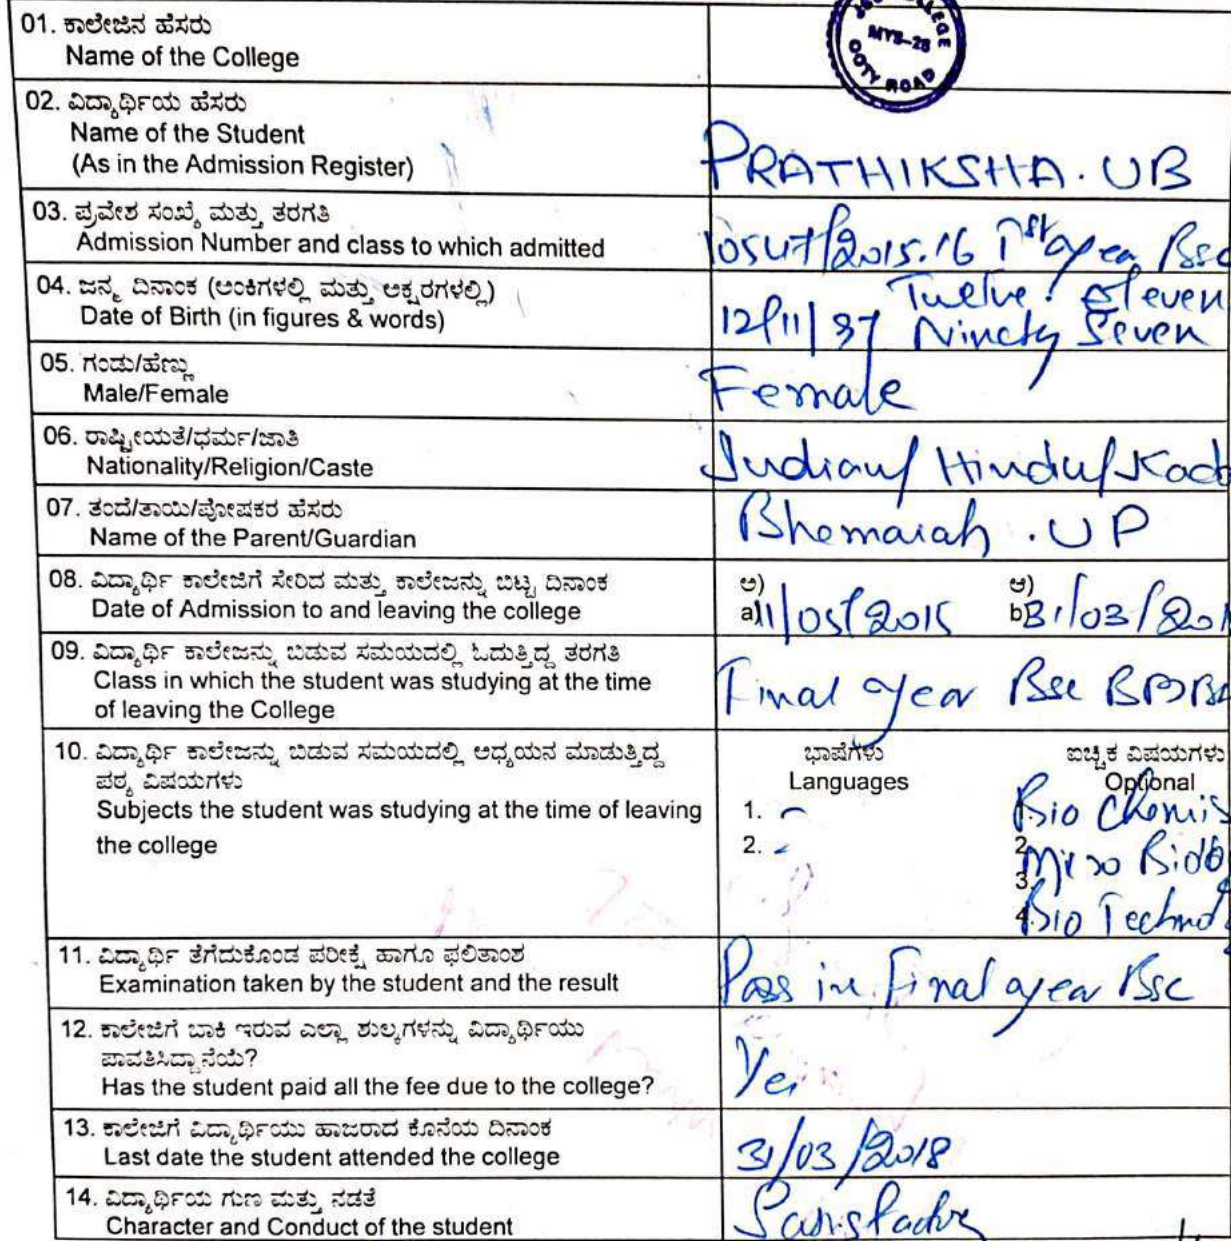 01. ಕಾಲೇಜಿನ ಹೆಸರು
Name of the College
COLLEGE
MYS-25
OOTY ROAD
02. ವಿದ್ಯಾರ್ಥಿಯ ಹೆಸರು
Name of the Student
(As in the Admission Register)
PRATHIKSHA. UB
03. ಪ್ರವೇಶ ಸಂಖ್ಯೆ ಮತ್ತು ತರಗತಿ
Admission Number and class to which admitted
/2015.16 Ist year Bsc
04. ಜನ್ಮ ದಿನಾಂಕ (ಅಂಕಿಗಳಲ್ಲಿ ಮತ್ತು ಅಕ್ಷರಗಳಲ್ಲಿ)
Date of Birth (in figures & words)
Twelve. Eleven
12/11/97 Ninety Seven
05. ಗಂಡು/ಹೆಣ್ಣು
Male/Female
Female
06. ರಾಷ್ಟ್ರೀಯತೆ/ಧರ್ಮ/ಜಾತಿ
Nationality/Religion/Caste
Indian/ Hindu/
07. ತಂದೆ/ತಾಯಿ/ಪೋಷಕರ ಹೆಸರು
Name of the Parent/Guardian
Bhemaiah . UP
08. ವಿದ್ಯಾರ್ಥಿ ಕಾಲೇಜಿಗೆ ಸೇರಿದ ಮತ್ತು ಕಾಲೇಜನ್ನು ಬಿಟ್ಟ ದಿನಾಂಕ
Date of Admission to and leaving the college
ಅ) ಆ)
a) 11/05/2015 b) 31/03/201
09. ವಿದ್ಯಾರ್ಥಿ ಕಾಲೇಜನ್ನು ಬಿಡುವ ಸಮಯದಲ್ಲಿ ಓದುತ್ತಿದ್ದ ತರಗತಿ
Class in which the student was studying at the time
of leaving the College
Final year Bsc
10. ವಿದ್ಯಾರ್ಥಿ ಕಾಲೇಜನ್ನು ಬಿಡುವ ಸಮಯದಲ್ಲಿ ಅಧ್ಯಯನ ಮಾಡುತ್ತಿದ್ದ
ಪಠ್ಯ ವಿಷಯಗಳು
Subjects the student was studying at the time of leaving
the college
ಭಾಷೆಗಳು ಐಚ್ಛಿಕ ವಿಷಯಗಳು
Languages Optional
1. - 1. Bio Chemis
2. - 2. Micro Biolo
3.
4. Bio Technol
11. ವಿದ್ಯಾರ್ಥಿ ತೆಗೆದುಕೊಂಡ ಪರೀಕ್ಷೆ ಹಾಗೂ ಫಲಿತಾಂಶ
Examination taken by the student and the result
Pass in Final year Bsc
12. ಕಾಲೇಜಿಗೆ ಬಾಕಿ ಇರುವ ಎಲ್ಲಾ ಶುಲ್ಕಗಳನ್ನು ವಿದ್ಯಾರ್ಥಿಯು
ಪಾವತಿಸಿದ್ದಾನೆಯೆ?
Has the student paid all the fee due to the college?
Yes
13. ಕಾಲೇಜಿಗೆ ವಿದ್ಯಾರ್ಥಿಯು ಹಾಜರಾದ ಕೊನೆಯ ದಿನಾಂಕ
Last date the student attended the college
31/03/2018
14. ವಿದ್ಯಾರ್ಥಿಯ ಗುಣ ಮತ್ತು ನಡತೆ
Character and Conduct of the student
Satisfactory